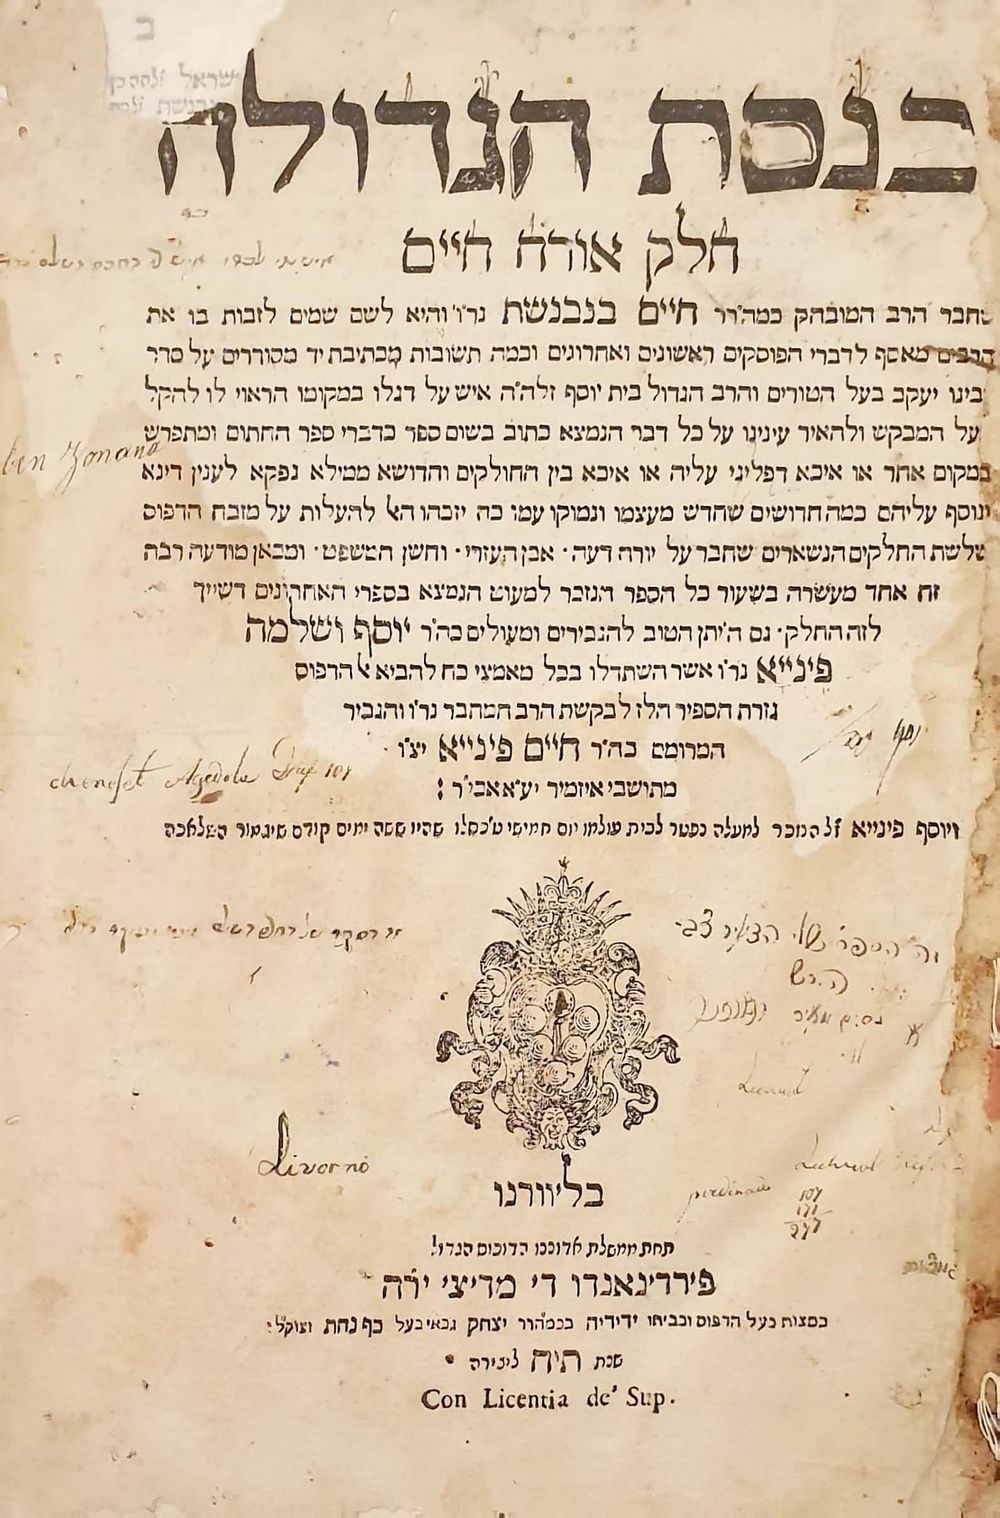 כנסת הגדולה
חלק אורח חיים
חבר הרב המובהק כמה״רר חיים בנבנשת נר״ו והיא לשם שמים לזכות בו את
הרבים מאסף לדברי הפוסקים ראשונים ואחרונים וכמה תשובות מכתיבת יד מסודרים על סדר
רבינו יעקב בעל הטורים והרב הגדול בית יוסף זלה״ה איש על דגלו במקומו הראוי לו להקל
על המבקש ולהאיר עינינו על כל דבר הנמצא כתוב בשום ספר כדברי ספר החתום ומתפרש
במקום אחר או איכא דפליגי עליה או איכא בין החולקים והדושא ממילא נפקא לענין דינא
ונוסף עליהם כמה חדושים שחדש מעצמו ונמוקו עמו כה יזכהו האל להעלות על מזבח הדפוס
שלשת החלקים הנשארים שחבר על יורה דעה · אבן העזרי · וחשן המשפט · ומכאן מודעה רבה
זה אחד מעשרה בשעור כל הספר הנזכר למעוט הנמצא בספרי האחרונים דשייך
לזה החלק · גם ה״יתן הטוב להגבירים ומעולים כה״ר יוסף ושלמה
פינייא נר״ו אשר השתדלו בכל מאמצי כח להביא אל הדפוס
גזרת הספיר הלז לבקשת הרב המחבר נר״ו והגביר
המרומם כה״ר חיים פינייא יצ״ו
מתושבי איזמיר יע״א אכי״ר :
ויוסף פינייא ז״ל הנזכר למעלה נפטר לבית עולמו יום חמישי ט׳ כסלו שהיו ששה ימים קודם שיגמור המלאכה
ben Zonana
chenesset Agedola Draf 107
זה הספר שלי הצעיר
Livorno
בליוורנו
107
171
277
תחת ממשלת אדוננו הדוכוס הגדול
פירדינאנדו די מדיצי יר״ה
במצות בעל הדפוס ובביתו ידידיה בכמהרר יצחק גבאי בעל כף נחת וצוק״ל :
שנת תיח ליצירה
Con Licentia de' Sup.